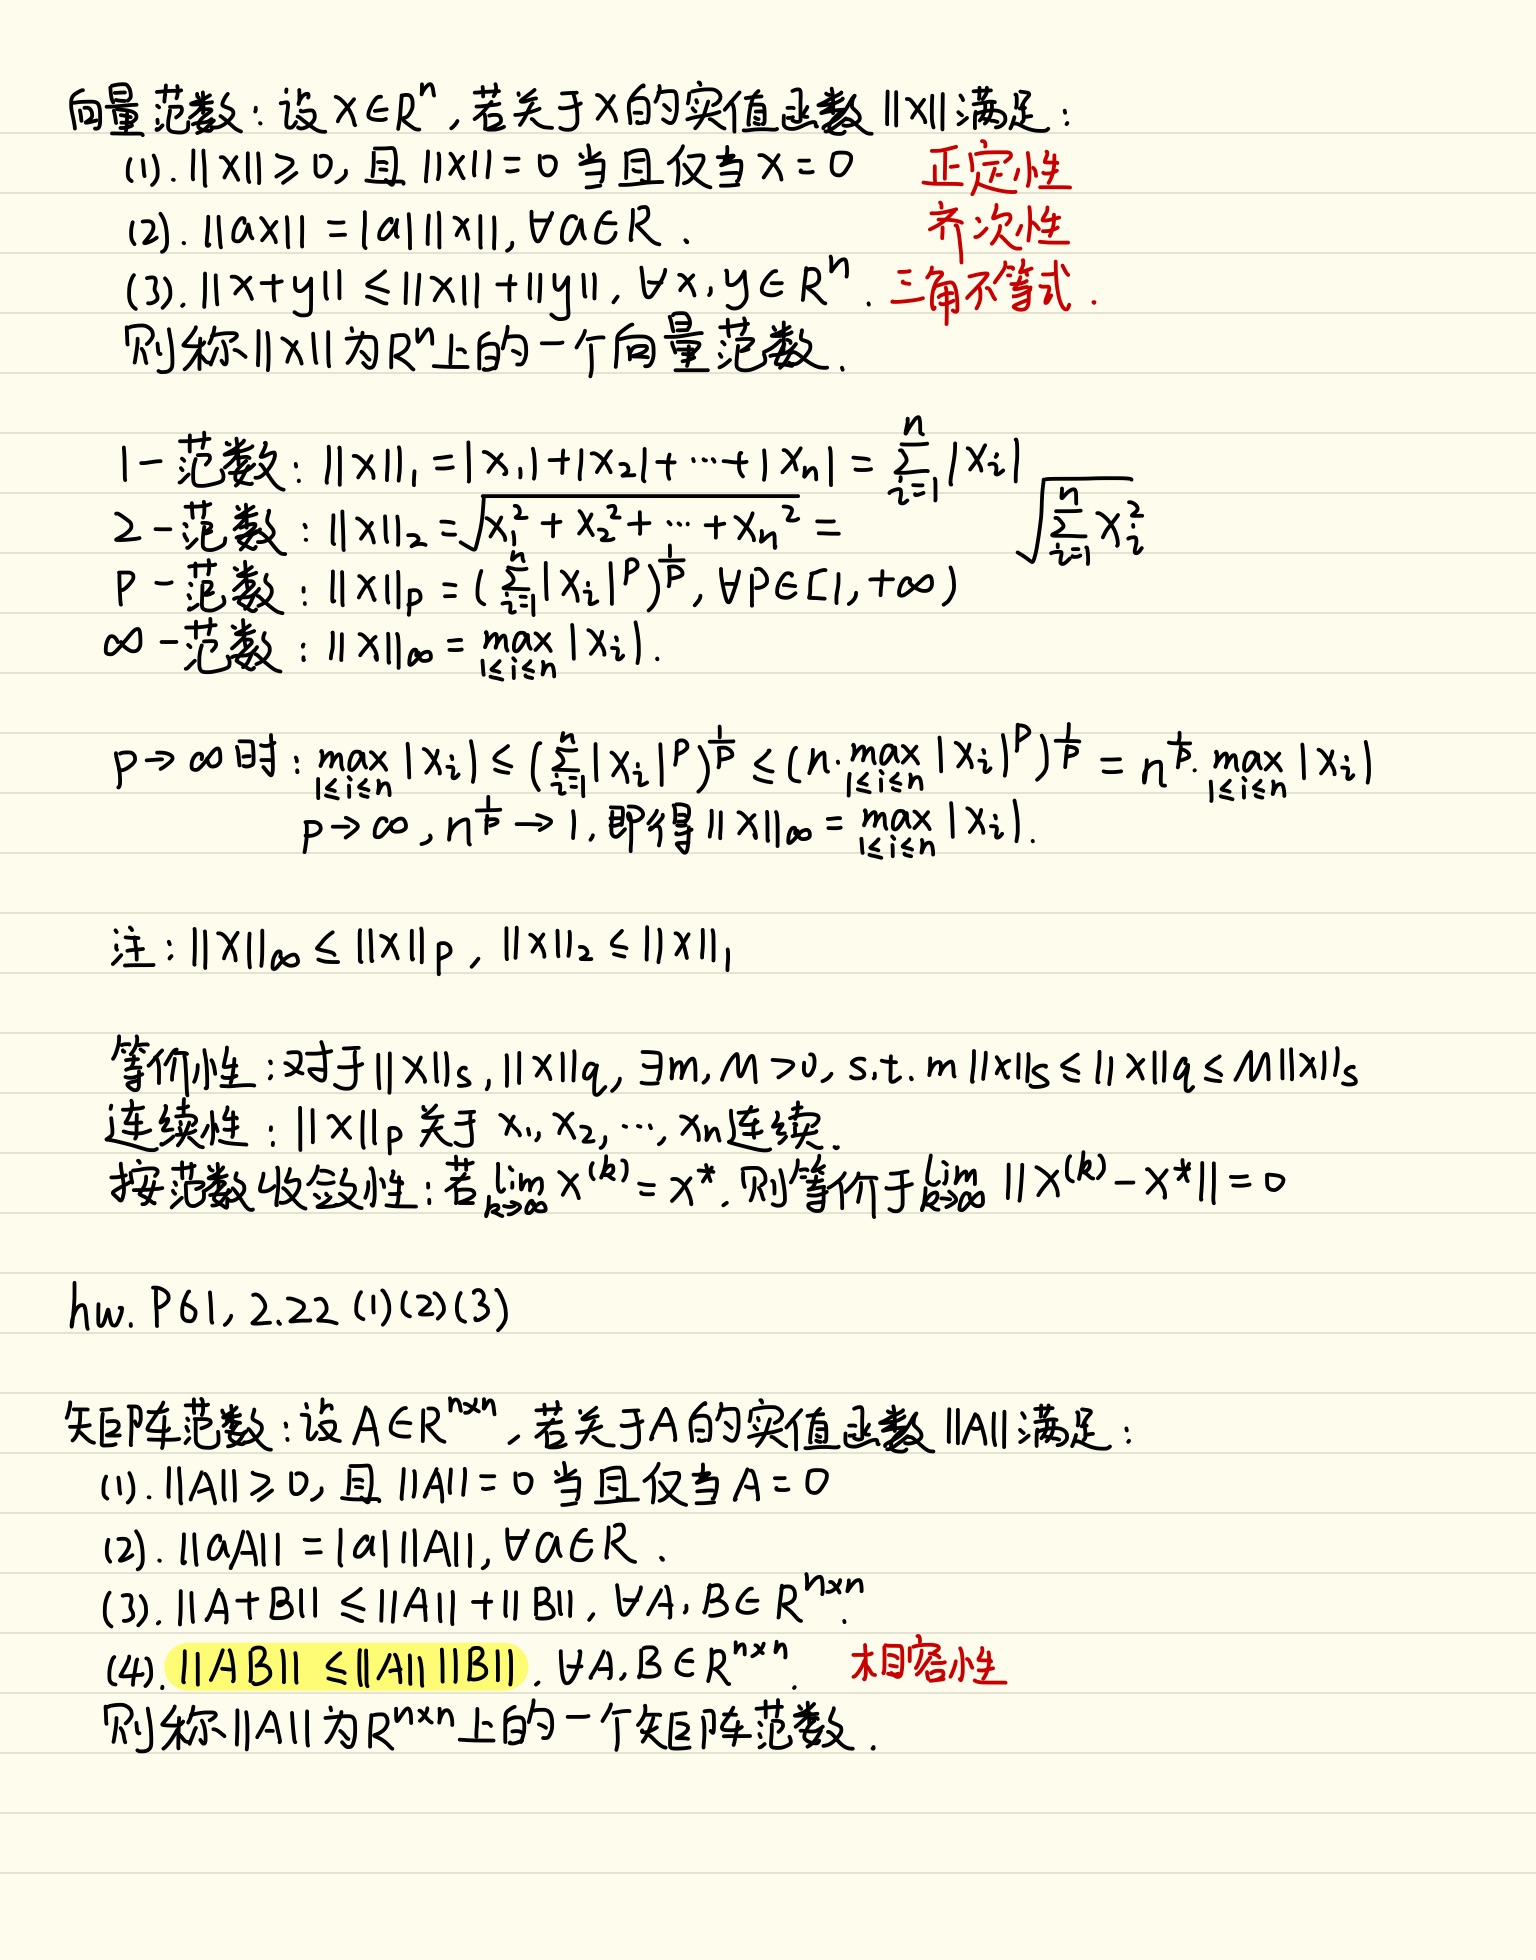 向量范数：设 x∈Rⁿ, 若关于 x 的实值函数 ||x|| 满足：
(1). ||x|| ≥ 0, 且 ||x|| = 0 当且仅当 x = 0 正定性
(2). ||ax|| = |a| ||x||, ∀a∈R. 齐次性
(3). ||x+y|| ≤ ||x|| + ||y||, ∀x, y∈Rⁿ. 三角不等式.
则称 ||x|| 为 Rⁿ 上的一个向量范数.
1-范数：||x||₁ = |x₁| + |x₂| + ⋯ + |xₙ| = ∑_{i=1}^{n} |xᵢ|
2-范数：||x||₂ = √(x₁² + x₂² + ⋯ + xₙ²) = √(∑_{i=1}^{n} xᵢ²)
p-范数：||x||_p = (∑_{i=1}^{n} |xᵢ|^p)^{1/p}, ∀p∈[1, +∞)
∞-范数：||x||_∞ = max_{1≤i≤n} |xᵢ|.
p→∞ 时：max_{1≤i≤n} |xᵢ| ≤ (∑_{i=1}^{n} |xᵢ|^p)^{1/p} ≤ (n·max_{1≤i≤n} |xᵢ|^p)^{1/p} = n^{1/p}·max_{1≤i≤n} |xᵢ|
p→∞, n^{1/p}→1, 即得 ||x||_∞ = max_{1≤i≤n} |xᵢ|.
注：||x||_∞ ≤ ||x||_p, ||x||₂ ≤ ||x||₁
等价性：对于 ||x||_s, ||x||_q, ∃m, M>0, s.t. m||x||_s ≤ ||x||_q ≤ M||x||_s
连续性：||x||_p 关于 x₁, x₂, ⋯, xₙ 连续.
按范数收敛性：若 lim_{k→∞} x^{(k)} = x*. 则等价于 lim_{k→∞} ||x^{(k)} - x*|| = 0
hw. P61, 2.22 (1)(2)(3)
矩阵范数：设 A∈R^{n×n}, 若关于 A 的实值函数 ||A|| 满足：
(1). ||A|| ≥ 0, 且 ||A|| = 0 当且仅当 A = 0
(2). ||aA|| = |a| ||A||, ∀a∈R.
(3). ||A+B|| ≤ ||A|| + ||B||, ∀A, B∈R^{n×n}.
(4). ||AB|| ≤ ||A|| ||B||. ∀A, B∈R^{n×n}. 相容性
则称 ||A|| 为 R^{n×n} 上的一个矩阵范数.